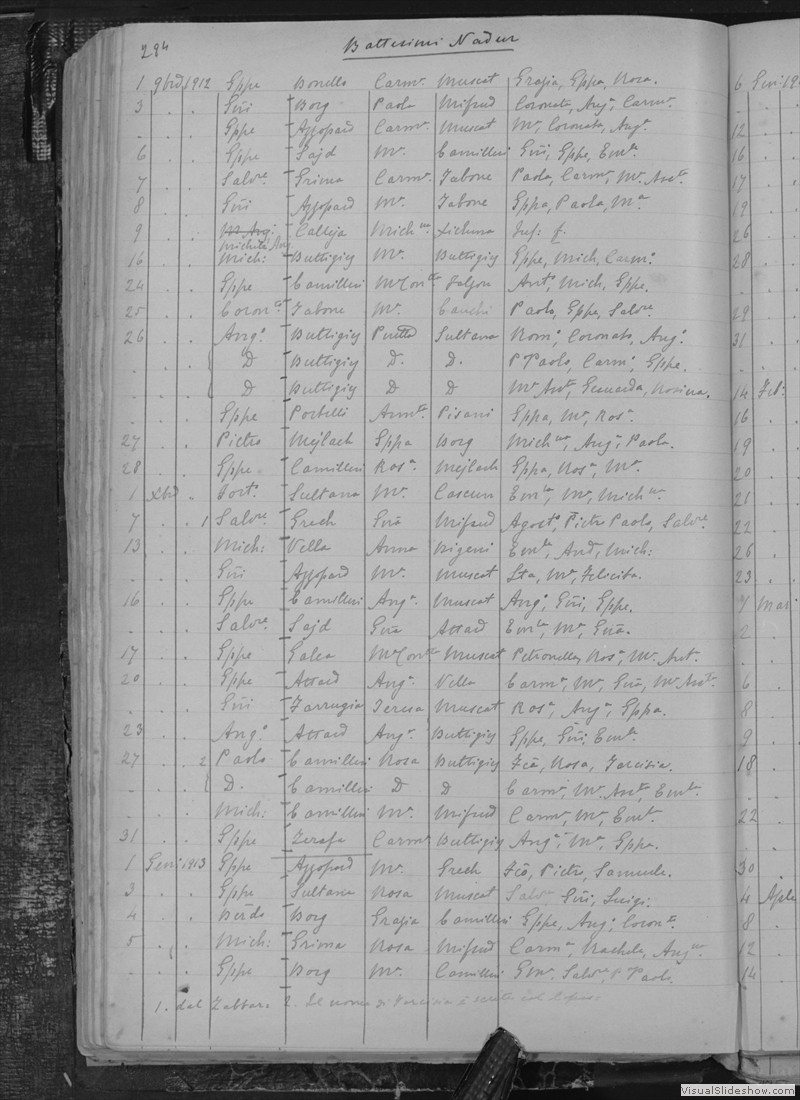 284 Battesimi Nadur
1 9brd 1912 Gppe Bonello Carmª Muscat Grazia, Gppa, Rosa. 6 Gen: 19
3 . . Giũ Borg Paola Mifsud Coronata, Angª, Carmª.
. . . Gppe Azzopard Carmª Muscat Mª, Coronata, Angª. 12
6 . . Gppe Sajd Mª. Camilleri Giũ, Gppe, Emla. 16
7 . . Salvre. Grima Carmª. Tabone Paola, Carmª, Mª. Antª. 17
8 . . Giũ Azzopard Mª. Tabone Gppa, Paola, Mª 19
9 . . M. Ang: Calleja Mich na Xicluna 26
Michele Ang
16 . . Mich: Buttigieg Mª. Buttigieg Gppe, Mich, Carmª. 28
24 . . Gppe Camilleri M Conta Falzon Antª, Mich, Gppe.
25 . . Coronto Tabone Mª. Cauchi Paola, Gppe, Salvre. 29
26 . . Angº Buttigieg Sultana Romº, Coronato, Angº. 31
. . . D Buttigieg D. D. P Paolo, Carmº, Gppe.
. . . D Buttigieg D D Mª Antª, Rosina. 14 Feb:
. . . Gppe Portelli Annta. Pisani Gppa, Mª, Rosª. 16
27 . . Pietro Mejlach Gppa Borg Mich na, Angª, Paola. 19
28 . . Gppe Camilleri Rosª. Mejlach Gppa, Rosª, Mª. 20
1 Xbrd " Fortº Sultana Mª. Cascun Emla, Mª, Mich na. 21
7 . . 1 Salvre. Grech Giũa Mifsud Agostº, Pietro Paolo, Salvre. 22
13 . . Mich: Vella Anna Emla, And, Mich: 26
. . . Giũ Azzopard Mª. Muscat Sta, Mª, Felicita. 23
16 . . Gppe Camilleri Angª. Muscat Angª, Giũ, Gppe. 7 Mar:
. . . Salvre. Sajd Giũa Attard Emla, Mª, Giũa. 2
17 . . Gppe Galea M Conta Muscat Petronella, Rosª, Mª. Ant. .
20 . . Gppe Attard Angª. Vella Carmª, Mª, Giũa, Mª Antª. 6
. . . Giũ Farrugia Teresa Muscat Rosª, Angª, Gppa. 8
23 . . Angº Attard Angª. Buttigieg Gppe, Giũ, Emla. 9
27 . . 2 Paolo Camilleri Rosa Buttigieg Fcã, Rosa, Tarcisia. 18
. . . D. Camilleri D D Carmª, Mª. Antª, Emla. .
. . . Mich: Camilleri Mª. Mifsud Carmª, Mª, Emla. 22
31 . . Gppe Zerafa Carmª Buttigieg Angª, Mª, Gppa. .
1 Gen: 1913 Gppe Azzopard Mª. Grech Fcã, Pietro, Samuele. 30
3 . . Gppe Sultana Rosa Muscat Salvre, Giũ, Luigi. 4 Aple
4 . . Borg Grazia Camilleri Gppe, Angª, Coronta. 8
5 . . Mich: Grima Rosa Mifsud Carmª, Rachela, Ang na 12
. . . Gppe Borg Mª. Camilleri Salvre, P Paolo. 14
1. dal Zabbar. 2. Il nome di Tarcisia è
VisualSlideshow.com